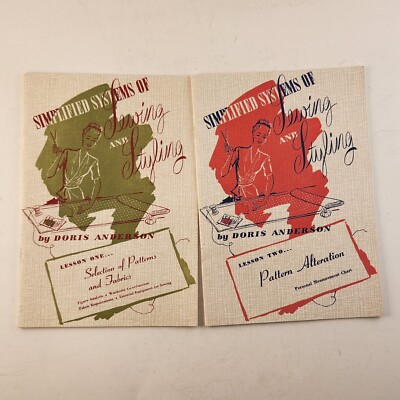 SIMPLIFIED SYSTEMS OF
Sewing
AND
Styling
by DORIS ANDERSON
LESSON ONE...
Selection of Patterns
and Fabrics
Figure Analysis • Wardrobe Co-ordination
Fabric Requirements • Essential Equipment for Sewing
SIMPLIFIED SYSTEMS OF
Sewing
AND
Styling
by DORIS ANDERSON
LESSON TWO...
Pattern Alteration
Personal Measurement Chart